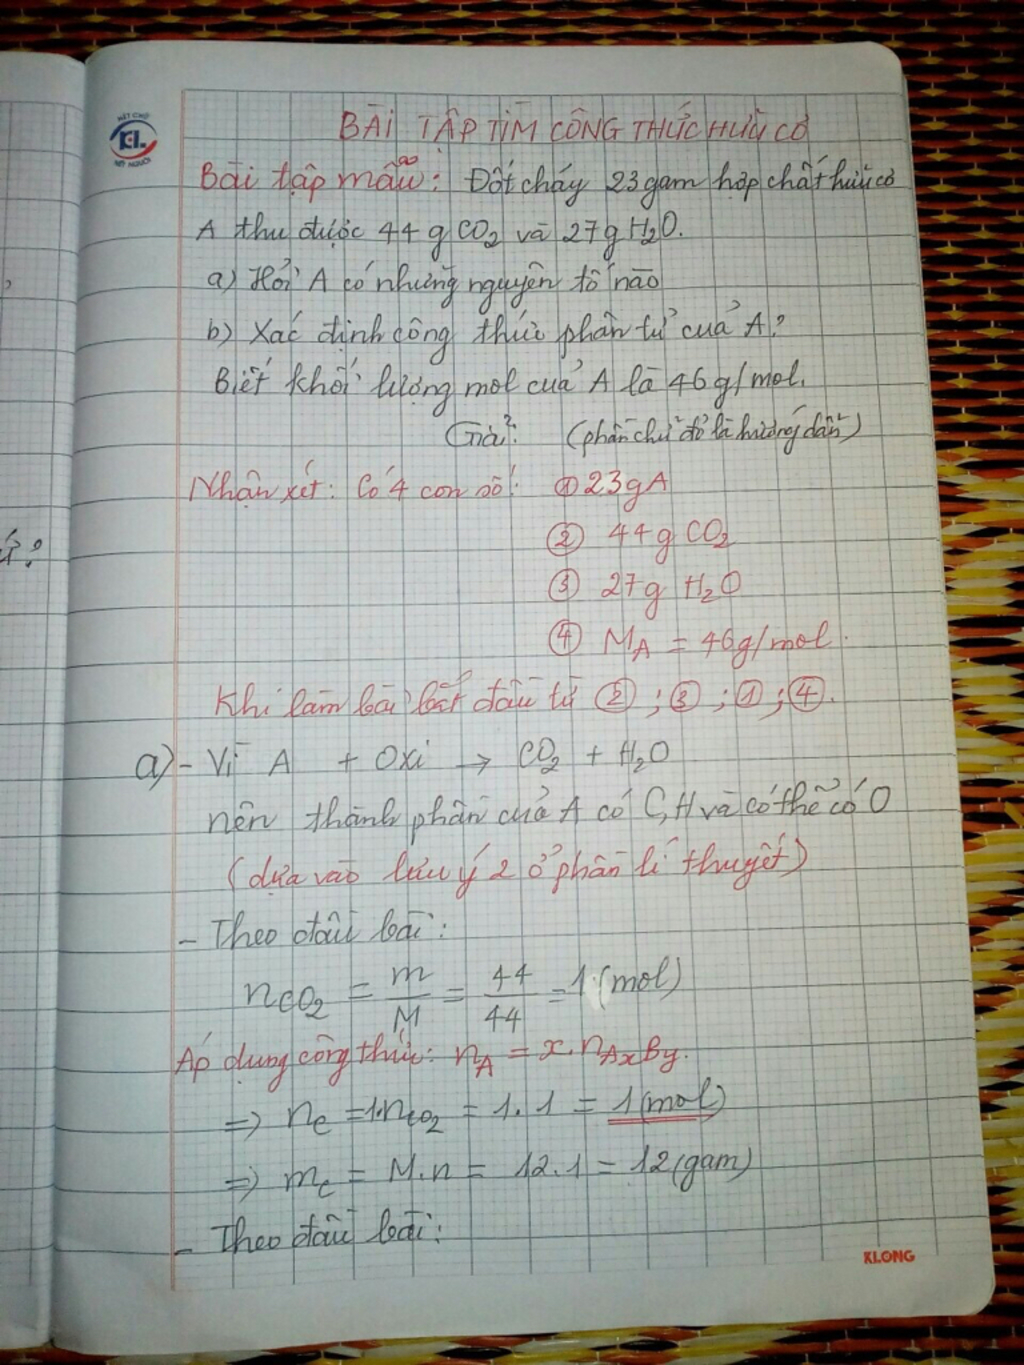 HẾT CHỮ
KL
HẾT NGƯỜI
BÀI TẬP TÌM CÔNG THỨC HỮU CƠ
Bài tập mẫu: Đốt cháy 23 gam hợp chất hữu cơ
A thu được 44 g CO₂ và 27g H₂O.
a) Hỏi A có những nguyên tố nào
b) Xác định công thức phân tử của A?
Biết khối lượng mol của A là 46 g/mol.
Giải (phần chữ đỏ là hướng dẫn)
Nhận xét: Có 4 con số: ① 23g A
② 44 g CO₂
③ 27g H₂O
④ M_A = 46g/mol.
Khi làm bài bắt đầu từ ②; ③; ①; ④.
a) - Vì A + Oxi → CO₂ + H₂O
nên thành phần của A có C, H và có thể có O
(dựa vào lưu ý 2 ở phần lí thuyết)
- Theo đầu bài:
n_CO₂ = m/M = 44/44 = 1 (mol)
Áp dụng công thức: n_A = x.n_AxBy.
=> n_C = 1.n_CO₂ = 1.1 = 1 (mol)
=> m_C = M.n = 12.1 = 12 (gam)
- Theo đầu bài:
KLONG
ứ?